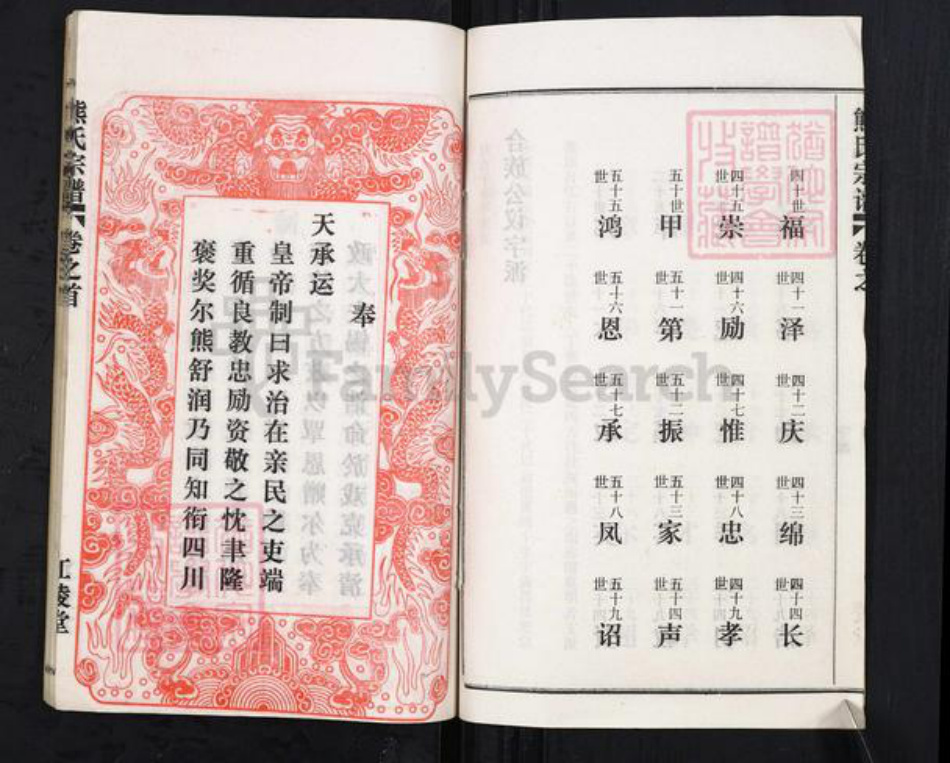 熊氏宗谱
卷之
四十世 福
四十一世 泽
四十二世 庆
四十三世 绵
四十四世 长
四十五世 崇
四十六世 励
四十七世 惟
四十八世 忠
四十九世 孝
五十世 甲
五十一世 第
五十二世 振
五十三世 家
五十四世 声
五十五世 鸿
五十六世 恩
五十七世 承
五十八世 凤
五十九世 诏
奉
天承运
皇帝制曰求治在亲民之吏端
重循良教忠励资敬之忱聿隆
褒奖尔熊舒润乃同知衔四川
熊氏宗谱
卷之首
江陵堂
FamilySearch